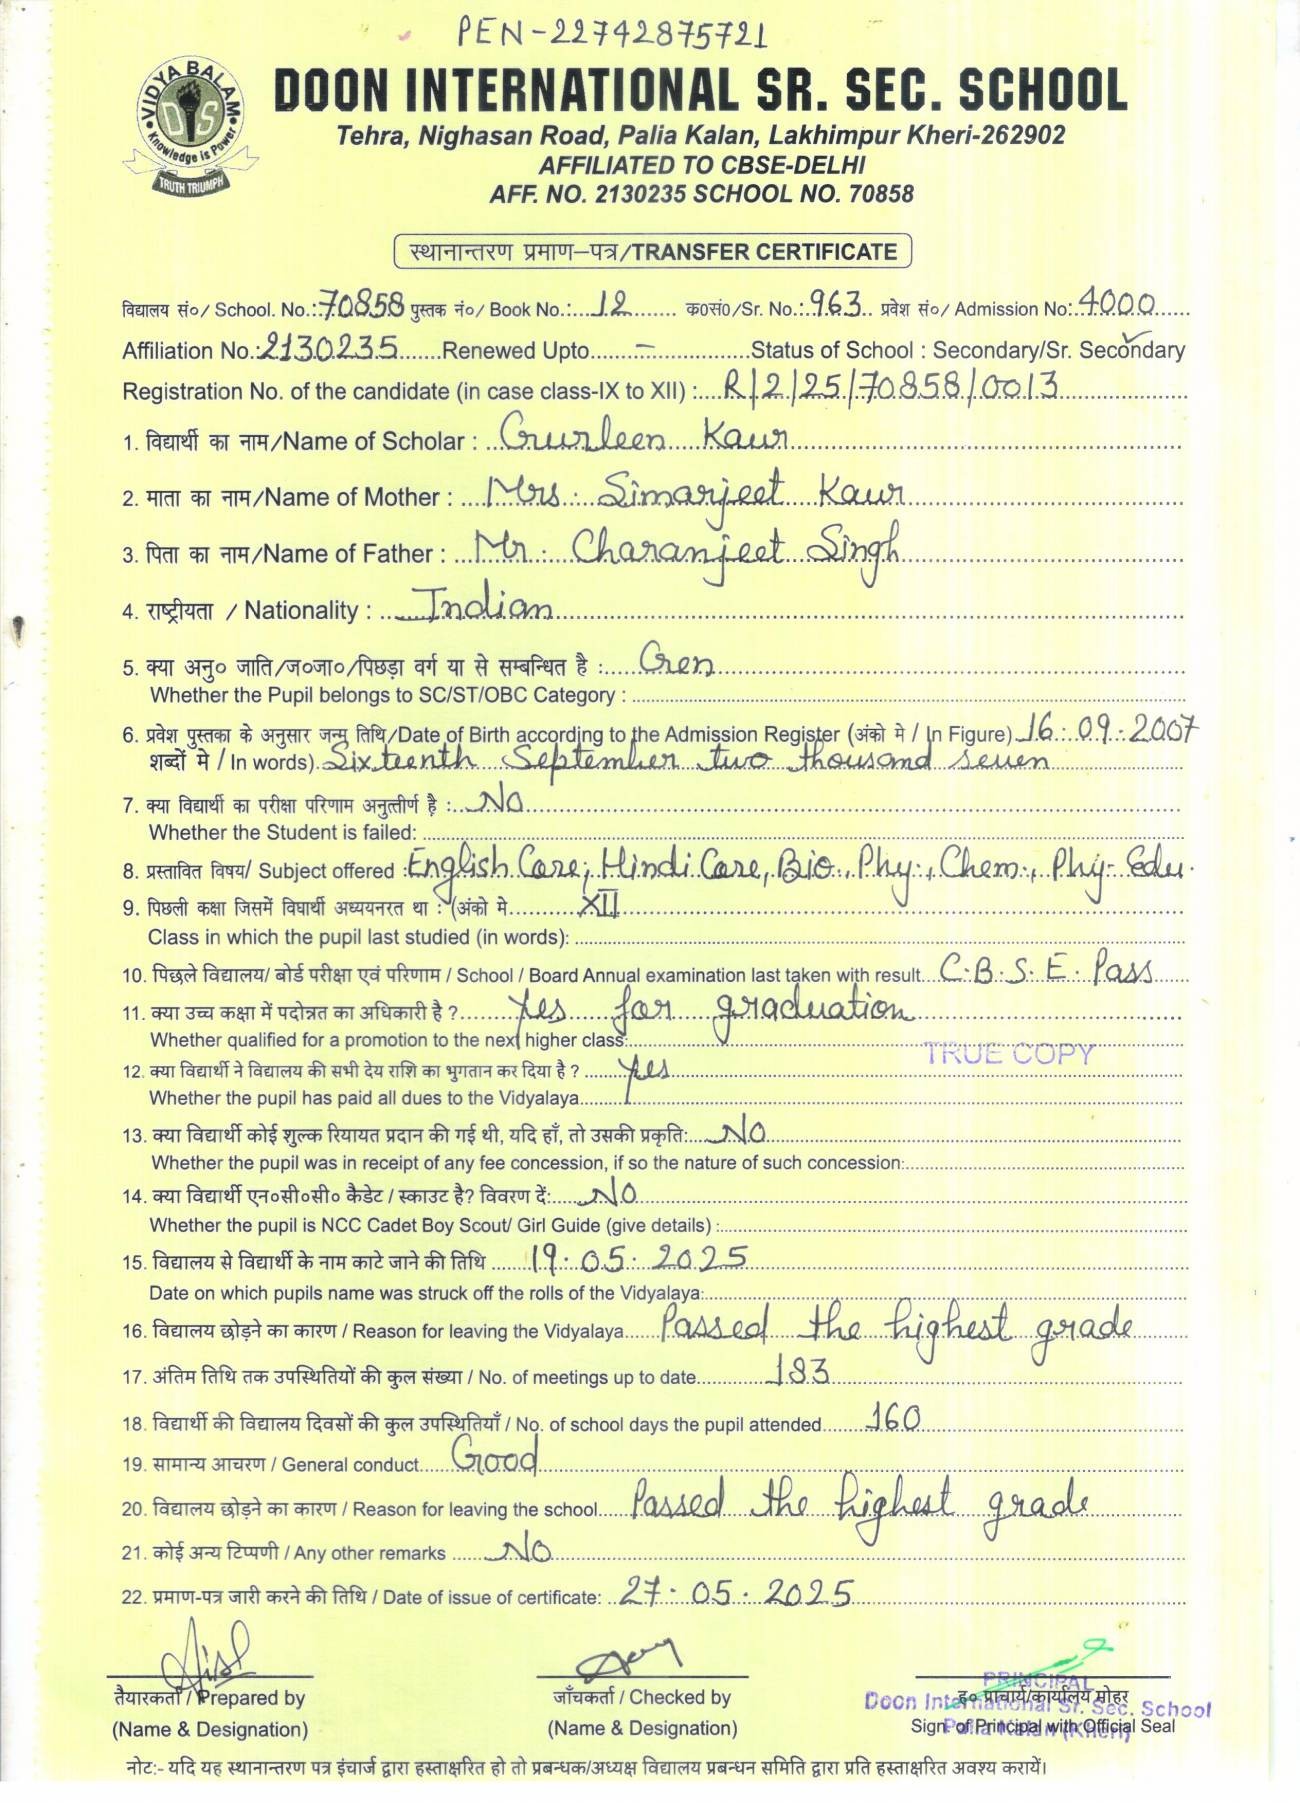 PEN-22742875721
VIDYA BALAM
DIS
Knowledge is Power
TRUTH TRIUMPH
DOON INTERNATIONAL SR. SEC. SCHOOL
Tehra, Nighasan Road, Palia Kalan, Lakhimpur Kheri-262902
AFFILIATED TO CBSE-DELHI
AFF. NO. 2130235 SCHOOL NO. 70858
स्थानान्तरण प्रमाण–पत्र/TRANSFER CERTIFICATE
विद्यालय सं०/ School. No.: 70858 पुस्तक नं०/ Book No.: 12 क0सं0/Sr. No.: 963 प्रवेश सं०/ Admission No: 4000
Affiliation No.: 2130235 Renewed Upto – Status of School : Secondary/Sr. Secondary ✓
Registration No. of the candidate (in case class-IX to XII) : R/2/25/70858/0013
1. विद्यार्थी का नाम/Name of Scholar : Gurleen Kaur
2. माता का नाम/Name of Mother : Mrs. Simarjeet Kaur
3. पिता का नाम/Name of Father : Mr. Charanjeet Singh
4. राष्ट्रीयता / Nationality : Indian
5. क्या अनु० जाति/ज०जा०/पिछड़ा वर्ग या से सम्बन्धित है : Gen
Whether the Pupil belongs to SC/ST/OBC Category :
6. प्रवेश पुस्तका के अनुसार जन्म तिथि/Date of Birth according to the Admission Register (अंको मे / In Figure) 16.09.2007
शब्दों मे / In words) Sixteenth September two thousand seven
7. क्या विद्यार्थी का परीक्षा परिणाम अनुत्तीर्ण है : No
Whether the Student is failed:
8. प्रस्तावित विषय/ Subject offered : English Core, Hindi Core, Bio., Phy., Chem., Phy. Edu.
9. पिछली कक्षा जिसमें विघार्थी अध्ययनरत था : (अंको मे XII
Class in which the pupil last studied (in words):
10. पिछले विद्यालय/ बोर्ड परीक्षा एवं परिणाम / School / Board Annual examination last taken with result C.B.S.E. Pass
11. क्या उच्च कक्षा में पदोन्नत का अधिकारी है ? yes for graduation
Whether qualified for a promotion to the next higher class:
TRUE COPY
12. क्या विद्यार्थी ने विद्यालय की सभी देय राशि का भुगतान कर दिया है ? yes
Whether the pupil has paid all dues to the Vidyalaya
13. क्या विद्यार्थी कोई शुल्क रियायत प्रदान की गई थी, यदि हाँ, तो उसकी प्रकृति: No
Whether the pupil was in receipt of any fee concession, if so the nature of such concession:
14. क्या विद्यार्थी एन०सी०सी० कैडेट / स्काउट है? विवरण दें: No
Whether the pupil is NCC Cadet Boy Scout/ Girl Guide (give details) :
15. विद्यालय से विद्यार्थी के नाम काटे जाने की तिथि 19.05.2025
Date on which pupils name was struck off the rolls of the Vidyalaya:
16. विद्यालय छोड़ने का कारण / Reason for leaving the Vidyalaya Passed the highest grade
17. अंतिम तिथि तक उपस्थितियों की कुल संख्या / No. of meetings up to date 183
18. विद्यार्थी की विद्यालय दिवसों की कुल उपस्थितियाँ / No. of school days the pupil attended 160
19. सामान्य आचरण / General conduct Good
20. विद्यालय छोड़ने का कारण / Reason for leaving the school Passed the highest grade
21. कोई अन्य टिप्पणी / Any other remarks No
22. प्रमाण-पत्र जारी करने की तिथि / Date of issue of certificate: 27.05.2025
तैयारकर्ता / Prepared by जाँचकर्ता / Checked by ह० प्राचार्य/कार्यालय मोहर
(Name & Designation) (Name & Designation) Sign of Principal with Official Seal
PRINCIPAL
Doon International Sr. Sec. School
Palia Kalan (Kheri)
नोटः- यदि यह स्थानान्तरण पत्र इंचार्ज द्वारा हस्ताक्षरित हो तो प्रबन्धक/अध्यक्ष विद्यालय प्रबन्धन समिति द्वारा प्रति हस्ताक्षरित अवश्य करायें।